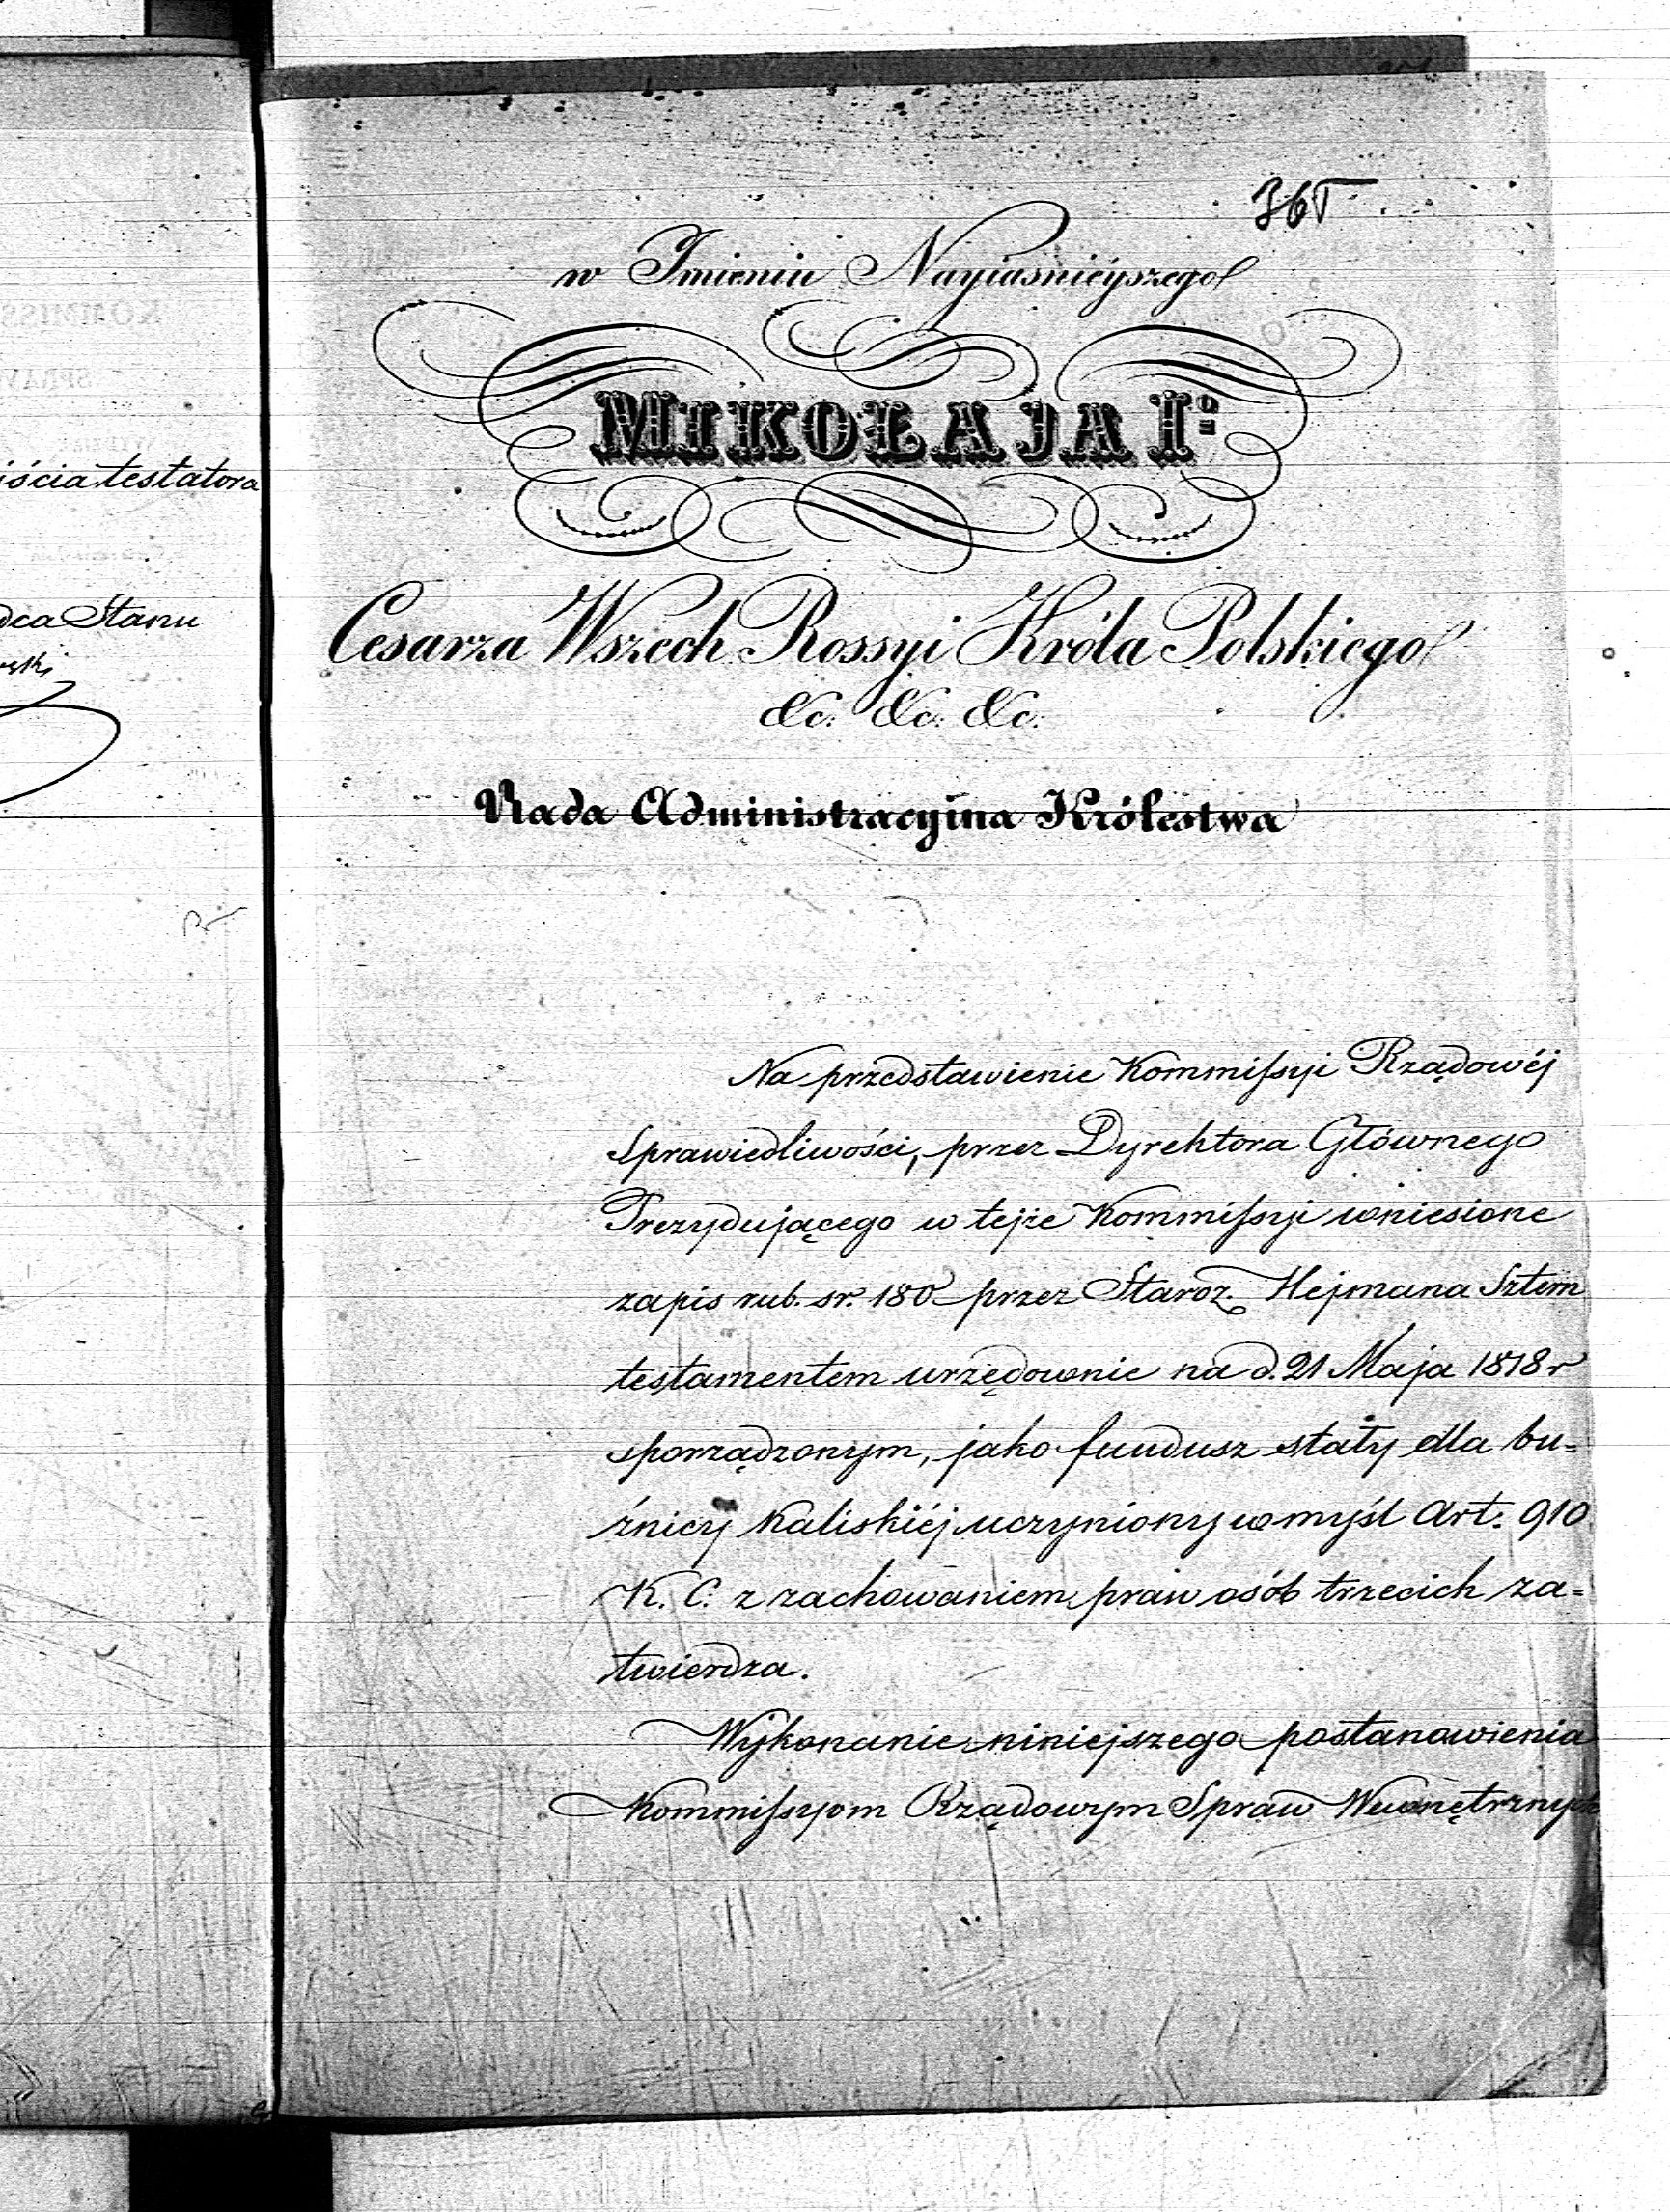 iścia testatora
dca Stanu
365
w Imieniu Nayiaśnieyszego
MIKOŁAJA Igo
Cesarza Wszech Rossyi Króla Polskiego
&c. &c. &c.
Rada Administracyina Królestwa
Na przedstawienie Kommissyi Rządowéj
Sprawiedliwości, przez Dyrektora Głównego
Prezydującego w tejże Kommissyi wniesione
zapis rub. sr. 180 przez Staroz. Hejmana Sztern
testamentem urzędownie na d. 21 Maja 1818 r
sporządzonym, jako fundusz stały dla bu=
źnicy Kaliskiéj uczyniony w myśl Art. 910
K. C. z zachowaniem praw osób trzecich za=
twierdza.
Wykonanie niniejszego postanowienia
Kommissyom Rządowym Spraw Wewnętrznych